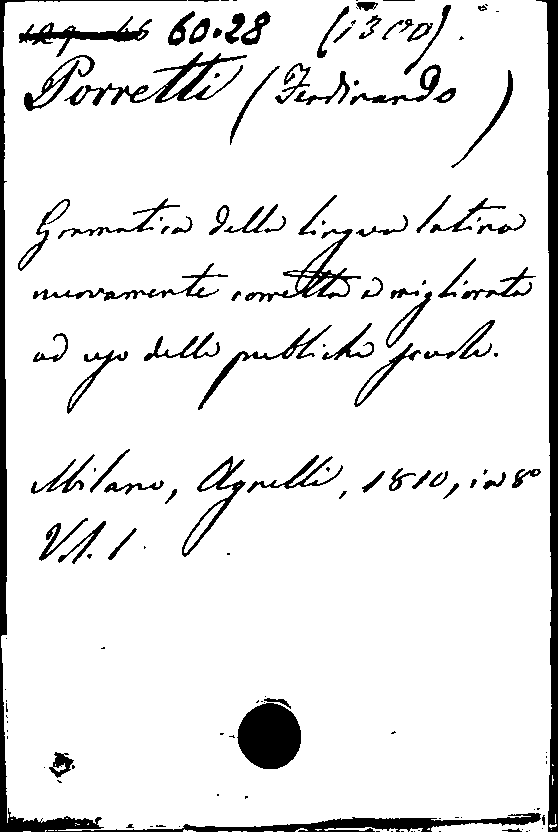 60.28 (1300).
Porretti (Ferdinando)
Gramatica della lingua latina
nuovamente corretta e migliorata
ad uso delle publiche scuole.
Milano, Agnelli, 1810, in 8°
Vol. 1